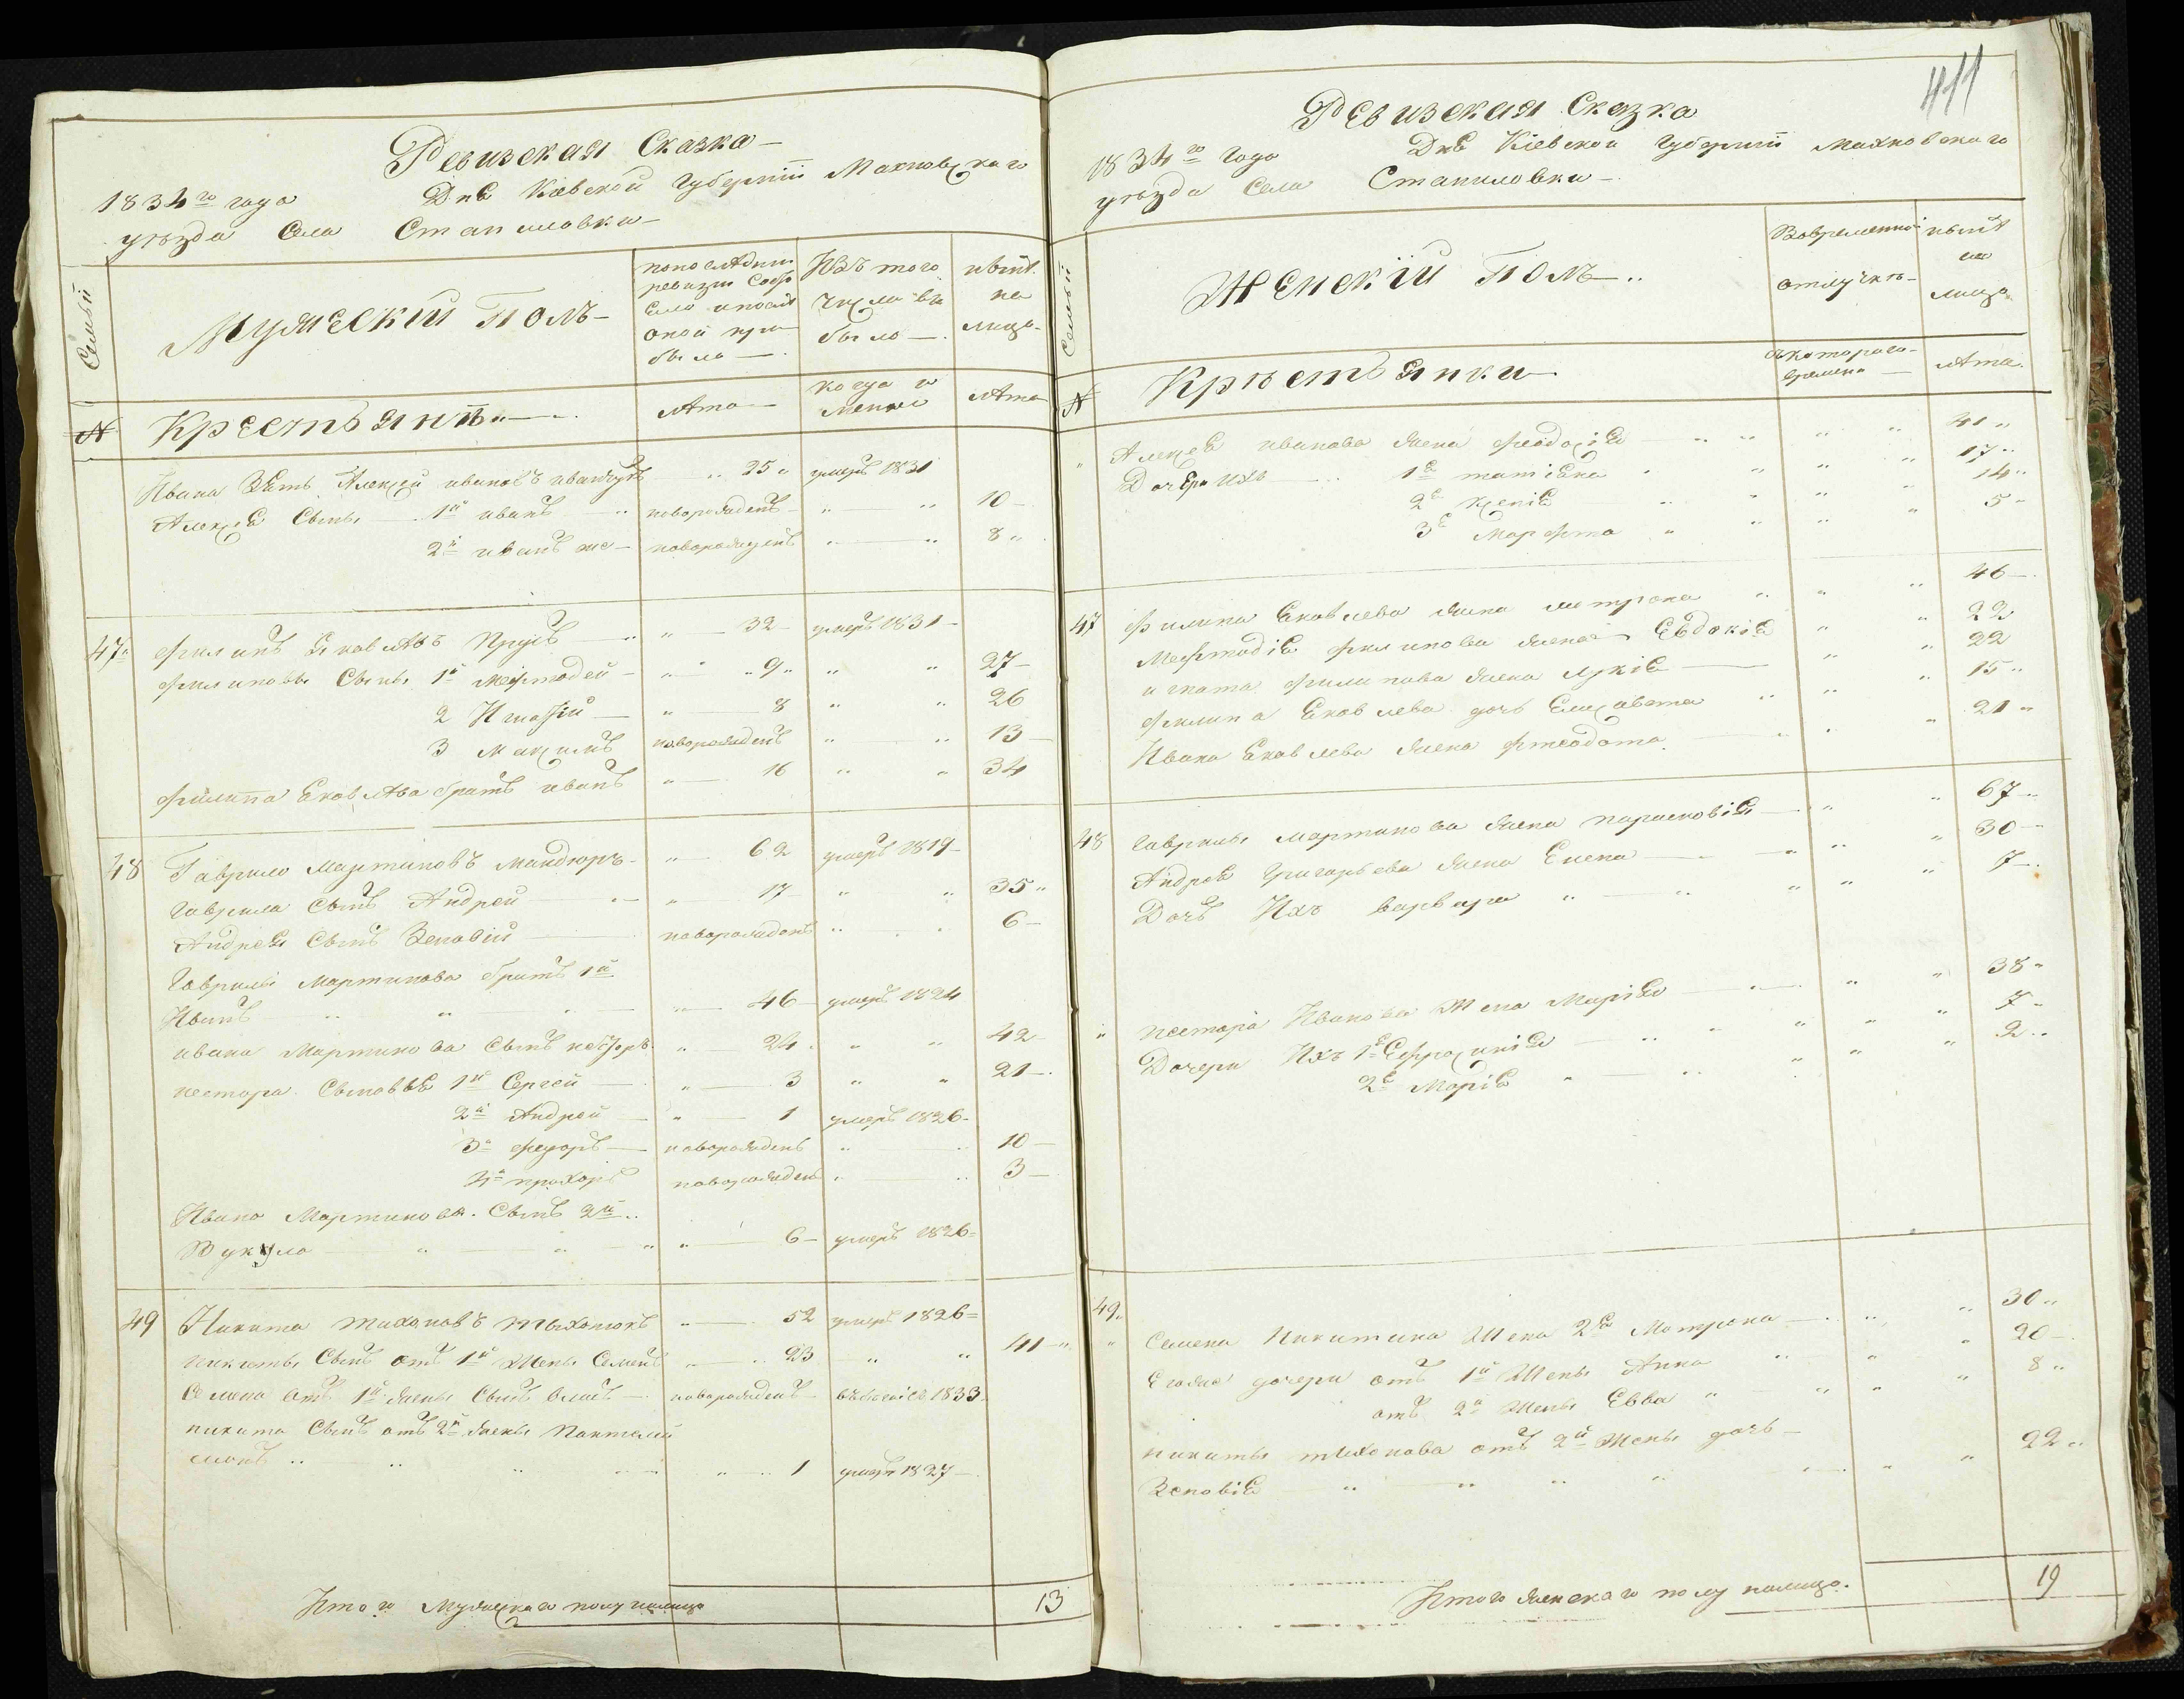 Ревизская Сказка
1834го года Дня Кіевской Губерніи Махновского
уѣзда Села Станиловки
Семьи
Мужескій Полъ
по последней
ревизіи состо
яло и после
оной при
было
Изъ того
числа вы
было
нынѣ
на
лицо
№
Крестьянѣ
Лѣта
когда и
менно
Лѣта
Ивана Зять Алексей ивановъ 25 умеръ 1831
Алексея Сыны 1й иванъ новорожденъ 10
2й иванъ же новорожденъ 8
47 Филипъ Яковлѣвъ Прусъ 32 умеръ 1831
Филиповы Сыны 1й Мефтодей 9 27
2 Игнатій 8 26
3 Максимъ новорожденъ 13
Филипа Яковлѣва братъ иванъ 16 34
48 Гаврило Мартиновъ Мандюръ 62 умеръ 1819
Гаврила Сынъ Андрей 17 35
Андрея Сынъ Зеновій новорожденъ 6
Гаврилы Мартинова братъ 1й
Иванъ 46 умеръ 1824
ивана Мартинова Сынъ несторъ 24 42
нестора Сыновья 1й Сергей 3 21
2й Андрей 1 умеръ 1826
3й Федоръ новорожденъ 10
4й прохоръ новорожденъ 3
Ивана Мартинова Сынъ 2й
Вукула 6 умеръ 1826
49 Никита Тихоновъ Тыхонюкъ 52 умеръ 1826
никиты Сынъ отъ 1й Жены Семенъ 23 41
Семена отъ 1й жены Сынъ новорожденъ 1833
никита Сынъ отъ 2й жены Пантелей
монъ 1 умеръ 1827
Итого Мужескаго полу налицо 13
411
Ревизская Сказка
1834го Года Дня Кіевской Губерніи Махновскаго
уѣзда Села Станиловки
Семьи
Женскій Полъ
Вовременной
отлучкѣ
нынѣ
на
лицо
№
Крѣстьянки
съ котораго
времени
Лѣта
Алексея иванова жена феодосія 41
Дочери ихъ 1я татіяна 17
2я Ксенія 14
3я Марфта 5
47 Филипа Яковлева жена метрона 46
Мефтодія Филипова жена Евдокія 22
игната филипова жена лукія 22
Филипа Яковлева дочь Елисавета 15
Ивана Яковлева жена фтеодота 21
48 Гаврилы мартинова жена парасковія 67
Андрея Григорьева жена Елена 30
Дочъ Ихъ варвара 7
нестора Иванова Жена Марія 38
Дочери Ихъ 1я Ефросинія 7
2я Марія 2
49 Семена Никитина Жена 2я Мотрона 30
Егоже дочери отъ 1й Жены Анна 20
отъ 2й Жены Евва 8
никиты тихонова отъ 2й Жены дочь
Зеновія 22
Итого женскаго полу налицо 19